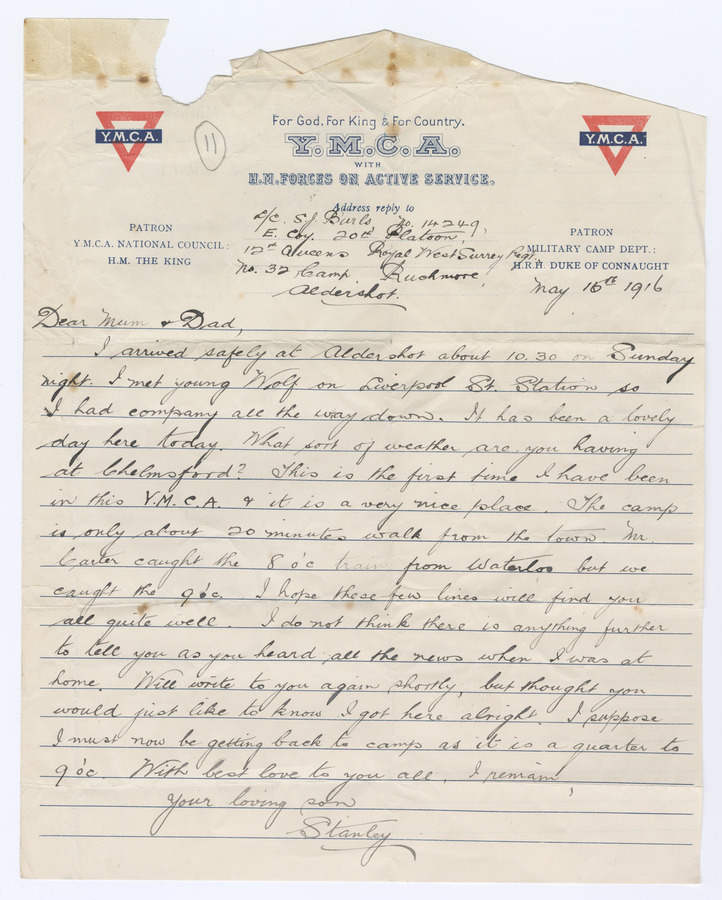 For God. For King & For Country.
Y.M.C.A.
Y.M.C.A.
Y.M.C.A.
11
WITH
H.M. FORCES ON ACTIVE SERVICE.
Address reply to
L/C. S.J. Burls No. 14249,
E. Coy. 20th Platoon,
12th Queens Royal West Surrey Regt.
No. 32 Camp Rushmore,
Aldershot.
PATRON
Y.M.C.A. NATIONAL COUNCIL:
H.M. THE KING
PATRON
MILITARY CAMP DEPT.:
H.R.H. DUKE OF CONNAUGHT
May 16th 1916
Dear Mum & Dad,
I arrived safely at Aldershot about 10.30 on Sunday
night. I met young Wolf on Liverpool St. Station so
I had company all the way down. It has been a lovely
day here today. What sort of weather are you having
at Chelmsford? This is the first time I have been
in this Y.M.C.A. & it is a very nice place. The camp
is only about 20 minutes walk from the town. Mr.
Carter caught the 8 o'c train from Waterloo but we
caught the 9 o'c. I hope these few lines will find you
all quite well. I do not think there is anything further
to tell you as you heard all the news when I was at
home. Will write to you again shortly, but thought you
would just like to know I got here alright. I suppose
I must now be getting back to camp as it is a quarter to
9 o'c. With best love to you all, I remain,
Your loving son
Stanley